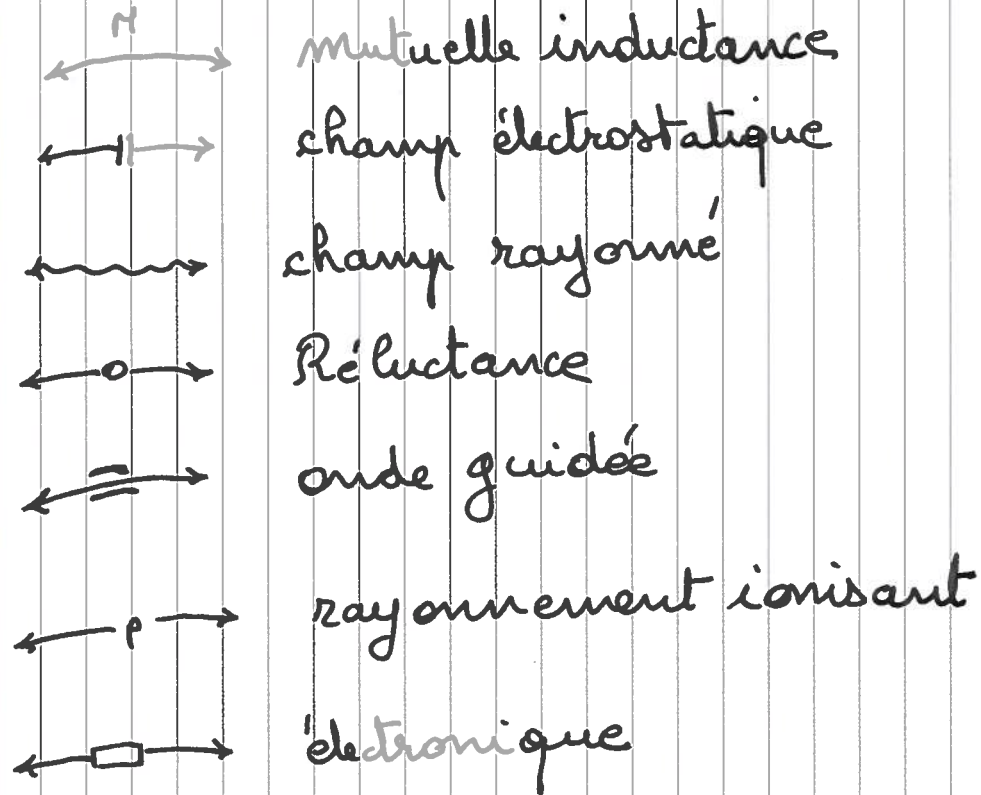 M
mutuelle inductance
champ électrostatique
champ rayonné
Réluctance
onde guidée
ρ rayonnement ionisant
électronique